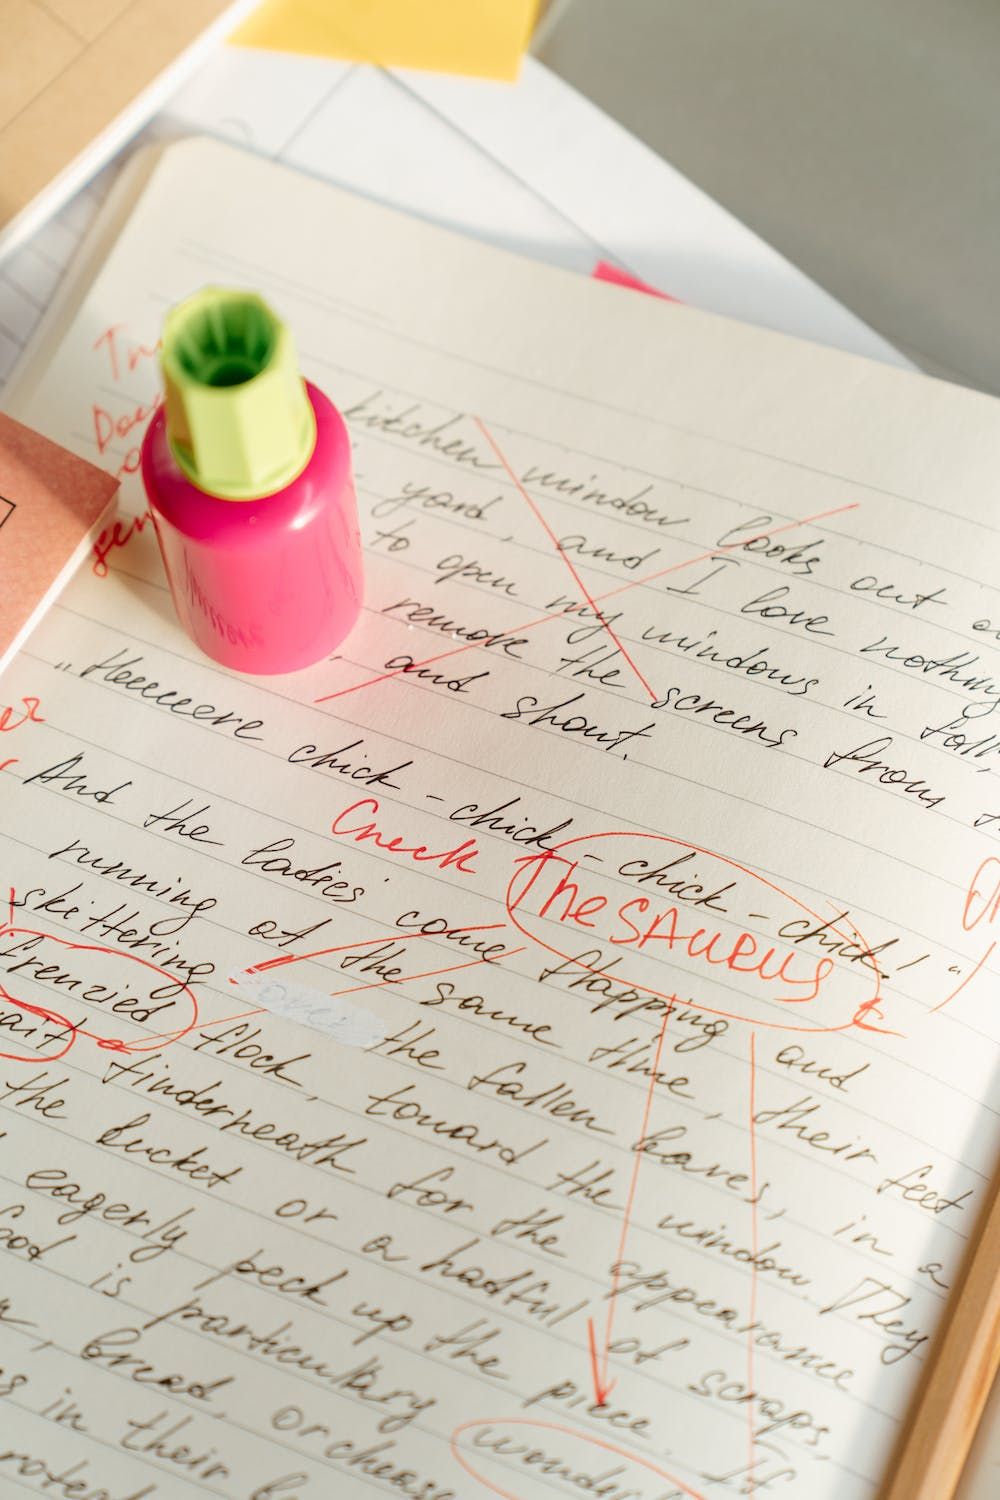 kitchen window looks out
yard, and I love nothing
to open my windows in fall,
remove the screens from
, and shout.
„Heeeeere chick-chick-chick-chick!“
Check TheSAuRUS
And the ladies' come flapping and
running at the same time, their feet
skittering over the fallen leaves, in a
frenzied flock, toward the window. They
wait finderneath for the appearance
the bucket or a hadful of scraps,
eagerly peck up the piece. If
is particulary wonder
, bread, or
in their